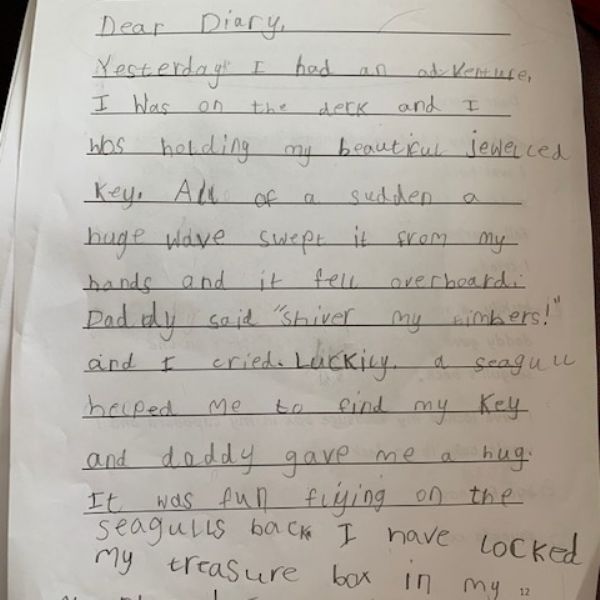 Dear Diary,
Yesterday I had an adventure,
I was on the deck and I
was holding my beautiful jewelled
key. All of a sudden a
huge wave swept it from my
hands and it fell overboard.
Daddy said "shiver my timbers!"
and I cried. Luckily, a seagull
helped me to find my key
and daddy gave me a hug.
It was fun flying on the
seagulls back I have locked
my treasure box in my
12